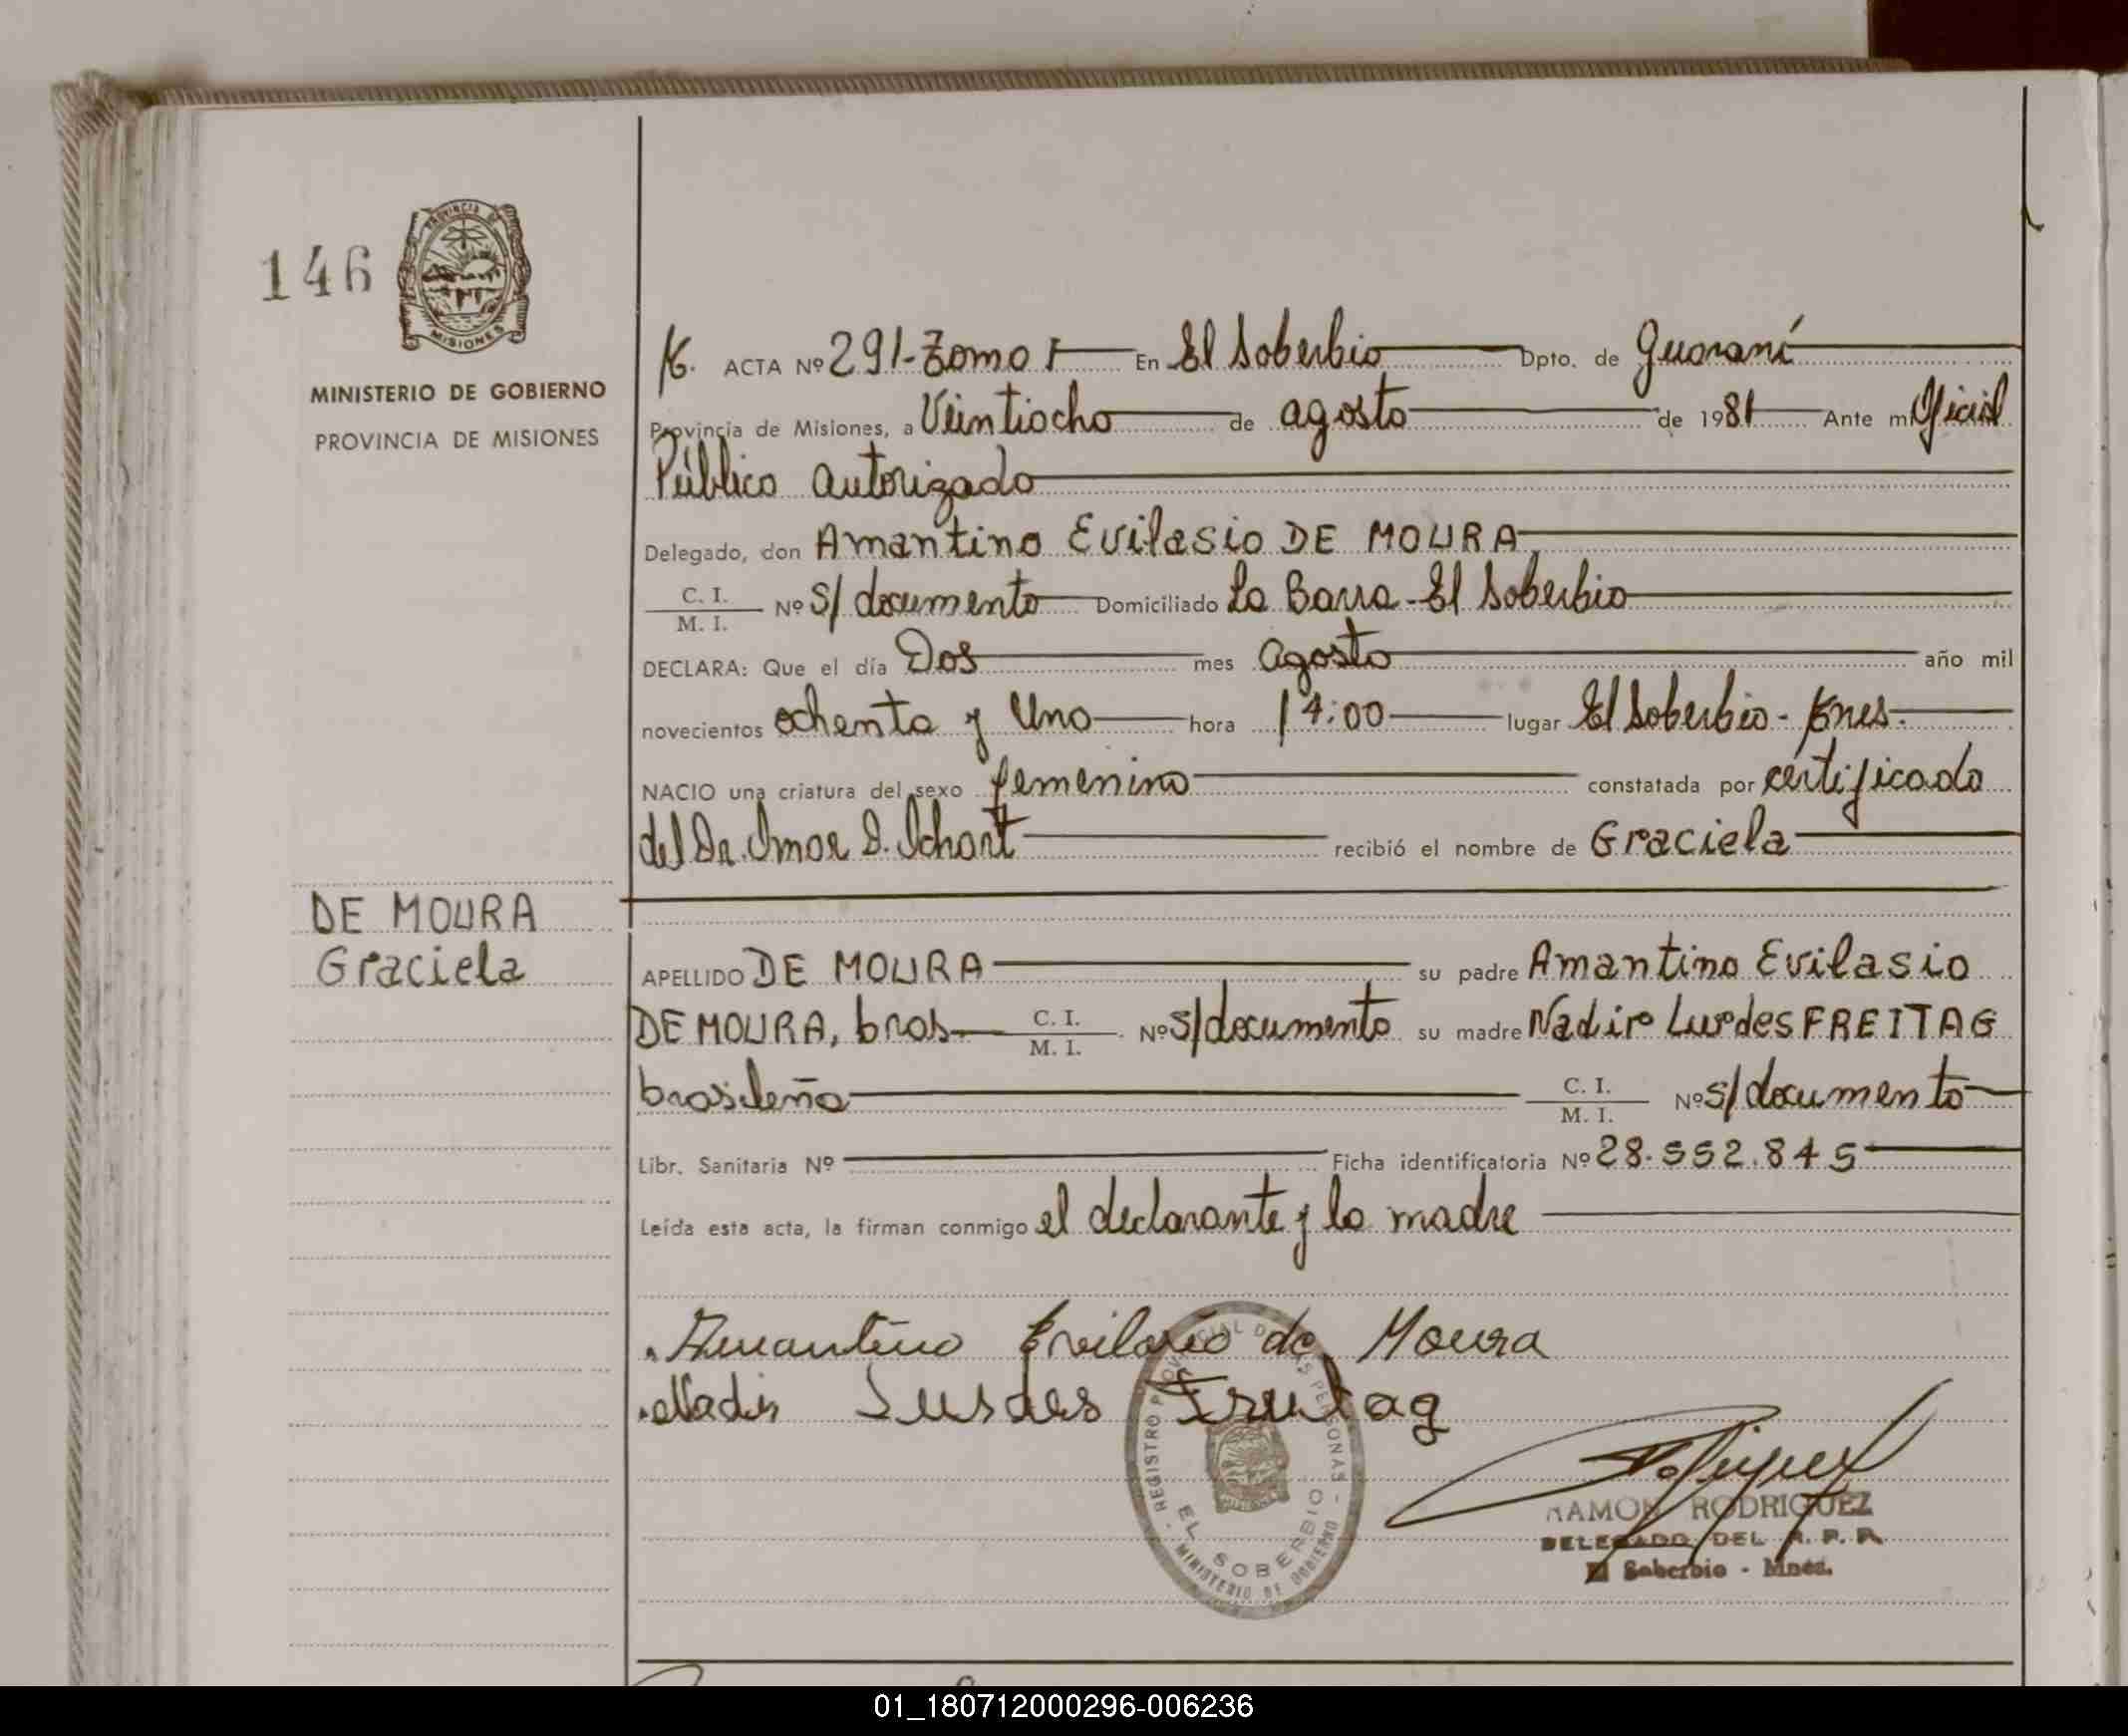 146
PROVINCIA DE
MISIONES
MINISTERIO DE GOBIERNO
PROVINCIA DE MISIONES
ACTA Nº 291-Tomo I En El Soberbio Dpto. de Guaraní
Provincia de Misiones, a Veintiocho de agosto de 1981 Ante mi Oficial
Público autorizado
Delegado, don Amantino Evilasio DE MOURA,
C. I.
M. I. Nº S/ documento Domiciliado La Barra - El Soberbio
DECLARA: Que el día Dos mes agosto año mil
novecientos ochenta y Uno hora 14:00 lugar El Soberbio - Mnes.
NACIO una criatura del sexo femenino constatada por certificado
del Dr. Omar D. recibió el nombre de Graciela
DE MOURA
Graciela
APELLIDO DE MOURA su padre Amantino Evilasio
DE MOURA, bras. C. I.
M. I. Nº S/documento su madre Nadir Lurdes FREITAG
brasileña C. I.
M. I. Nº S/documento
Libr. Sanitaria Nº Ficha identificatoria Nº 28.552.845
Leída esta acta, la firman conmigo el declarante y la madre
Amantino Evilasio de Moura
Nadir Lurdes Freitag
REGISTRO PROVINCIAL DE LAS PERSONAS
EL SOBERBIO
MINISTERIO DE GOBIERNO
RAMON RODRIGUEZ
DELEGADO DEL R. P. P.
El Soberbio - Mnes.
01_180712000296-006236